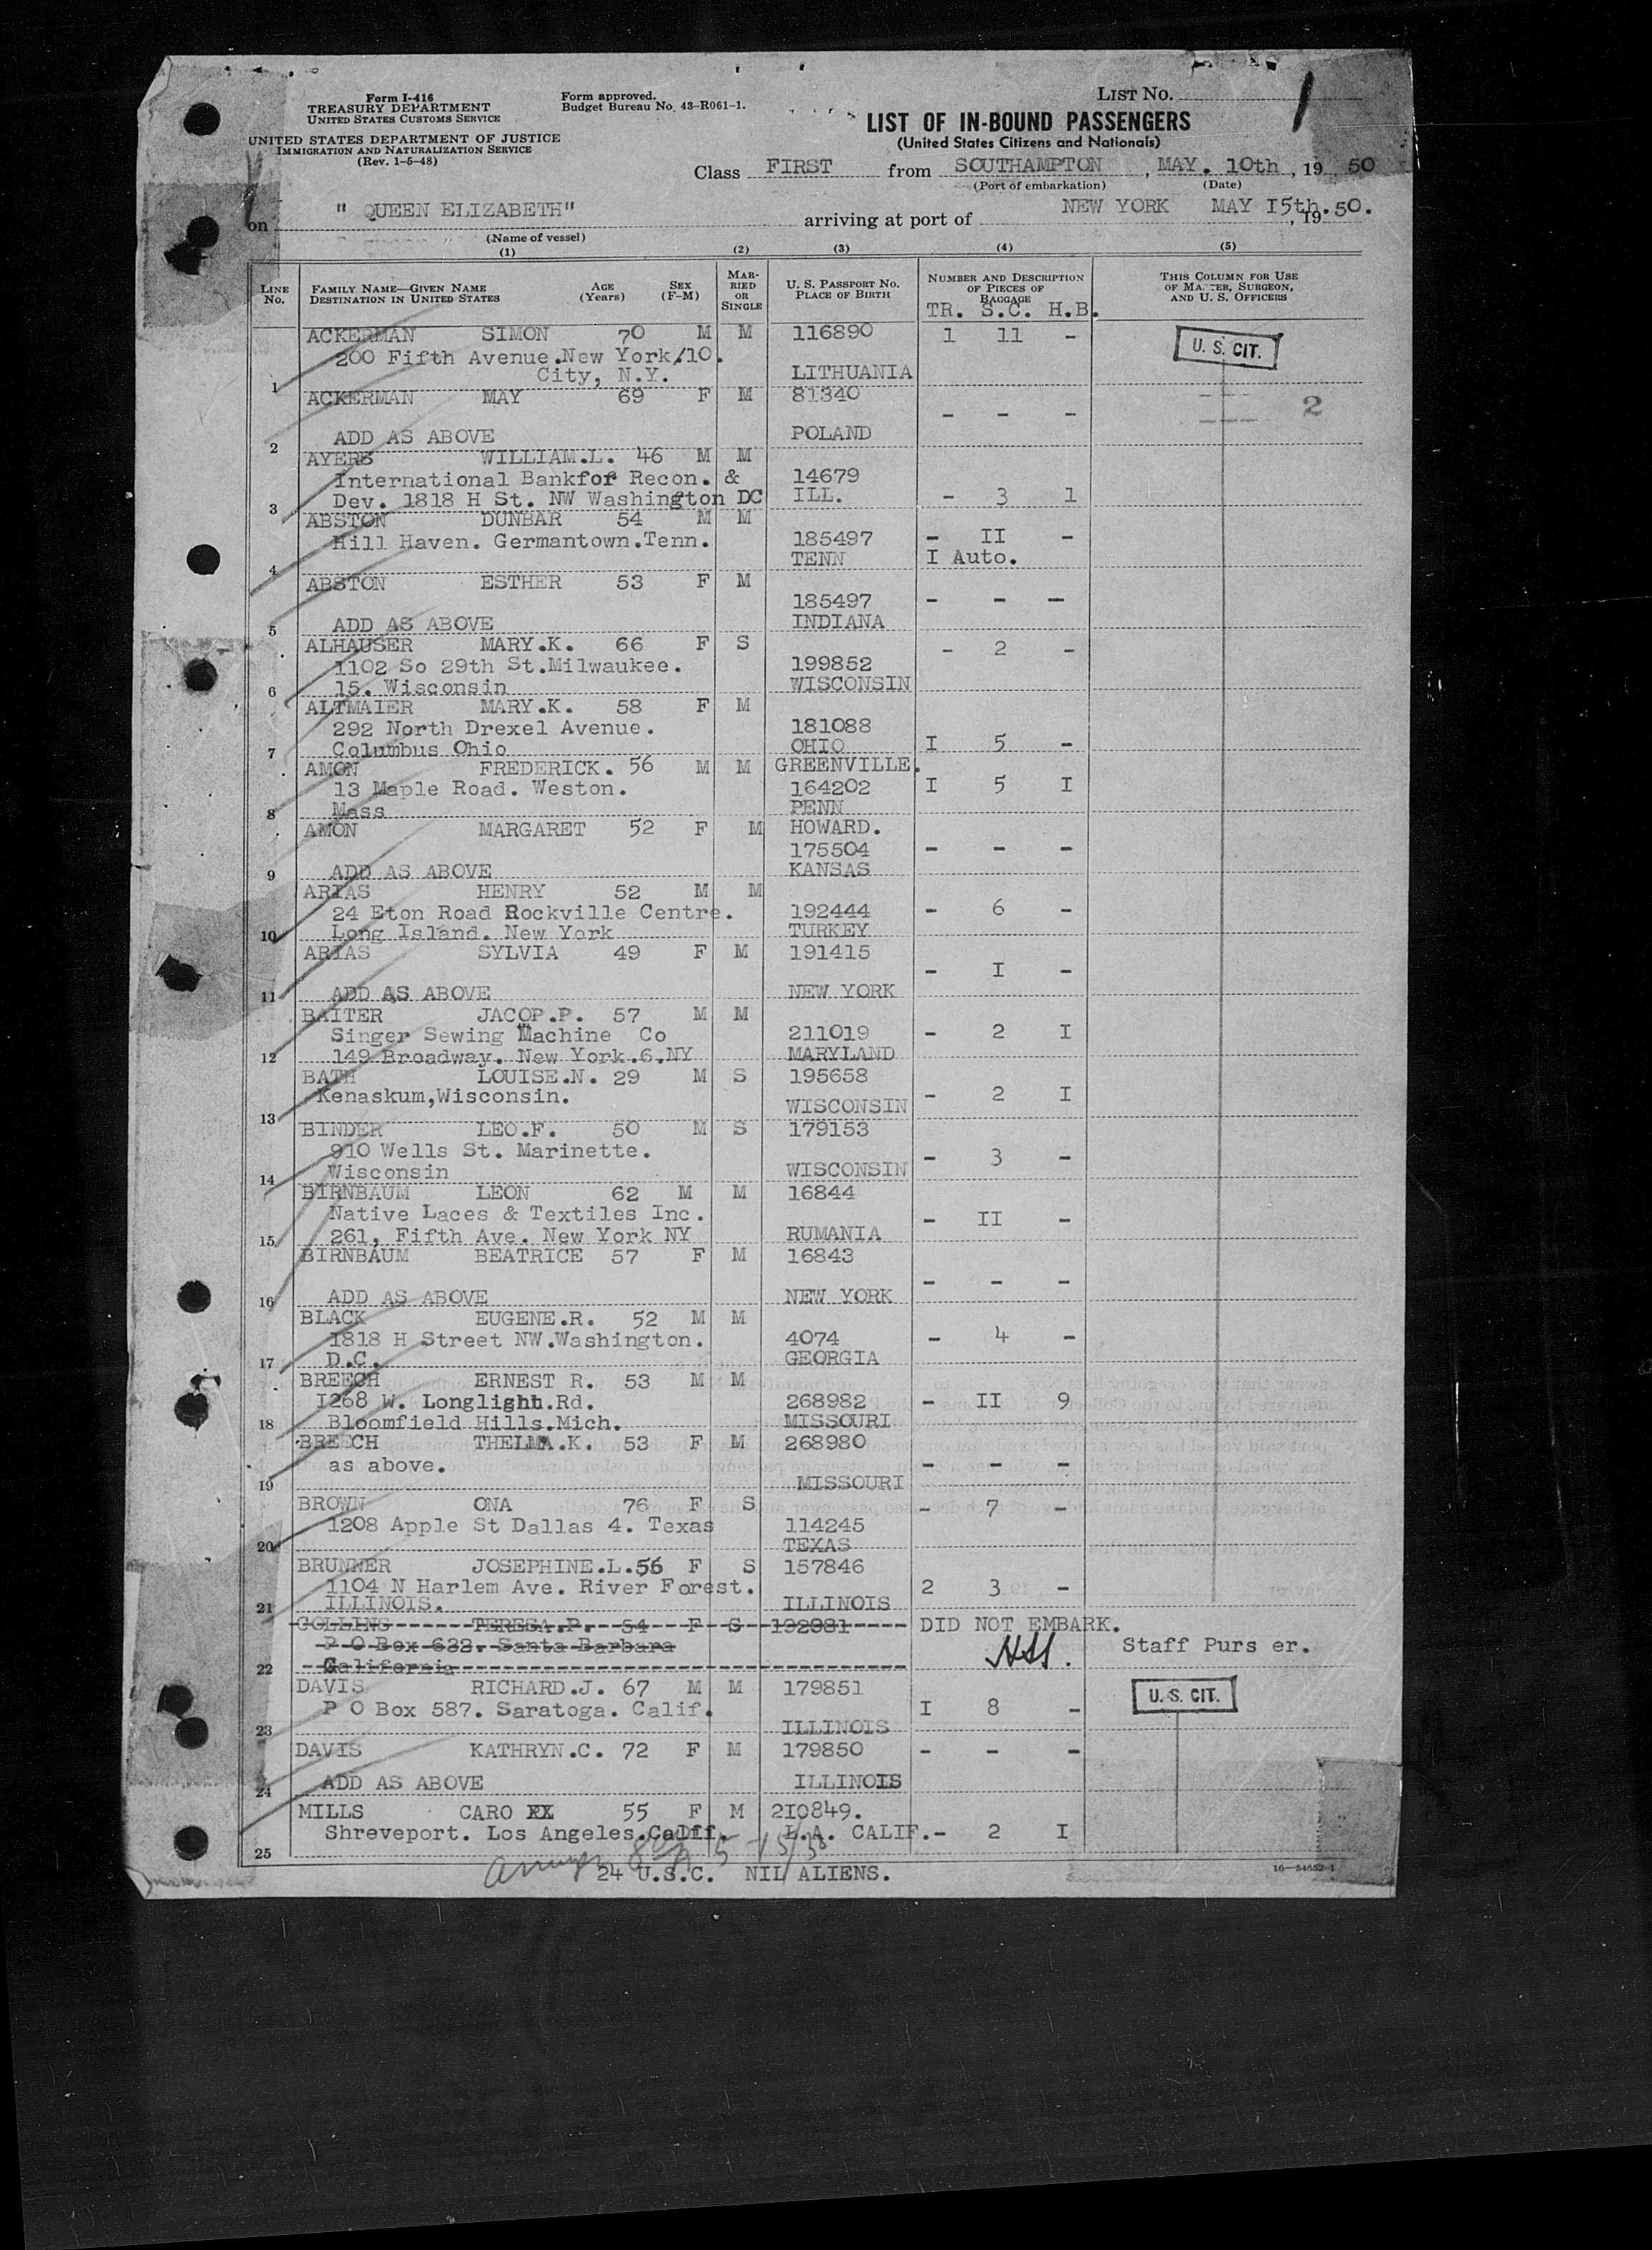 Form I-416
TREASURY DEPARTMENT
UNITED STATES CUSTOMS SERVICE
UNITED STATES DEPARTMENT OF JUSTICE
IMMIGRATION AND NATURALIZATION SERVICE
(Rev. 1-5-48)
Form approved.
Budget Bureau No. 43-R061-1.
LIST NO. 1
LIST OF IN-BOUND PASSENGERS
(United States Citizens and Nationals)
Class FIRST from SOUTHAMPTON, MAY. 10th, 19 50
(Port of embarkation) (Date)
on " QUEEN ELIZABETH" arriving at port of NEW YORK MAY I5th, 19 50.
(Name of vessel)
(1) (2) (3) (4) (5)
LINE No. FAMILY NAME—GIVEN NAME DESTINATION IN UNITED STATES AGE (Years) SEX (F-M) MARRIED OR SINGLE U. S. PASSPORT NO. PLACE OF BIRTH NUMBER AND DESCRIPTION OF PIECES OF BAGGAGE THIS COLUMN FOR USE OF MASTER, SURGEON, AND U. S. OFFICERS
TR. S.C. H.B.
ACKERMAN SIMON 70 M M 116890 1 11 -
U. S. CIT.
200 Fifth Avenue.New York/10.
1 City, N.Y. LITHUANIA
ACKERMAN MAY 69 F M 81340
- - - 2
2 ADD AS ABOVE POLAND
AYERS WILLIAM.L. 46 M M
International Bankfor Recon. & 14679
3 Dev. 1818 H St. NW Washington DC ILL. - 3 1
ABSTON DUNBAR 54 M M
Hill Haven. Germantown.Tenn. 185497 - II -
4 TENN I Auto.
ABSTON ESTHER 53 F M
185497 - - -
5 ADD AS ABOVE INDIANA
ALHAUSER MARY.K. 66 F S - 2 -
1102 So 29th St.Milwaukee. 199852
6 15. Wisconsin WISCONSIN
ALTMAIER MARY.K. 58 F M
292 North Drexel Avenue. 181088
7 Columbus Ohio OHIO I 5 -
AMON FREDERICK. 56 M M GREENVILLE.
13 Maple Road. Weston. 164202 I 5 I
8 Mass PENN
AMON MARGARET 52 F M HOWARD.
175504 - - -
9 ADD AS ABOVE KANSAS
ARIAS HENRY 52 M M
24 Eton Road Rockville Centre. 192444 - 6 -
10 Long Island. New York TURKEY
ARIAS SYLVIA 49 F M 191415
- I -
11 ADD AS ABOVE NEW YORK
BAITER JACOP.P. 57 M M
Singer Sewing Machine Co 211019 - 2 I
12 149 Broadway. New York.6.NY MARYLAND
BATH LOUISE.N. 29 M S 195658
Kenaskum,Wisconsin. - 2 I
13 WISCONSIN
BINDER LEO.F. 50 M S 179153
910 Wells St. Marinette. - 3 -
14 Wisconsin WISCONSIN
BIRNBAUM LEON 62 M M 16844
Native Laces & Textiles Inc. - II -
15 261, Fifth Ave. New York NY RUMANIA
BIRNBAUM BEATRICE 57 F M 16843
- - -
16 ADD AS ABOVE NEW YORK
BLACK EUGENE.R. 52 M M
1818 H Street NW.Washington. 4074 - 4 -
17 D.C. GEORGIA
BREECH ERNEST R. 53 M M
I268 W. Longlight.Rd. 268982 - II 9
18 Bloomfield Hills.Mich. MISSOURI
BREECH THELMA.K. 53 F M 268980
as above. - - -
19 MISSOURI
BROWN ONA 76 F S - 7 -
1208 Apple St Dallas 4. Texas 114245
20 TEXAS
BRUNNER JOSEPHINE.L.56 F S 157846
1104 N Harlem Ave. River Forest. 2 3 -
21 ILLINOIS. ILLINOIS
COLLINS TERESA.P. 54 F S 192981 DID NOT EMBARK.
P O Box 632. Santa Barbara Staff Purs er.
22 California
DAVIS RICHARD.J. 67 M M 179851 U. S. CIT.
P O Box 587. Saratoga. Calif. I 8 -
23 ILLINOIS
DAVIS KATHRYN.C. 72 F M 179850 - - -
24 ADD AS ABOVE ILLINOIS
MILLS CARO XX 55 F M 2I0849.
Shreveport. Los Angeles.Calif. L.A. CALIF.- 2 I
25
24 U.S.C. NIL ALIENS.
16—54652-1